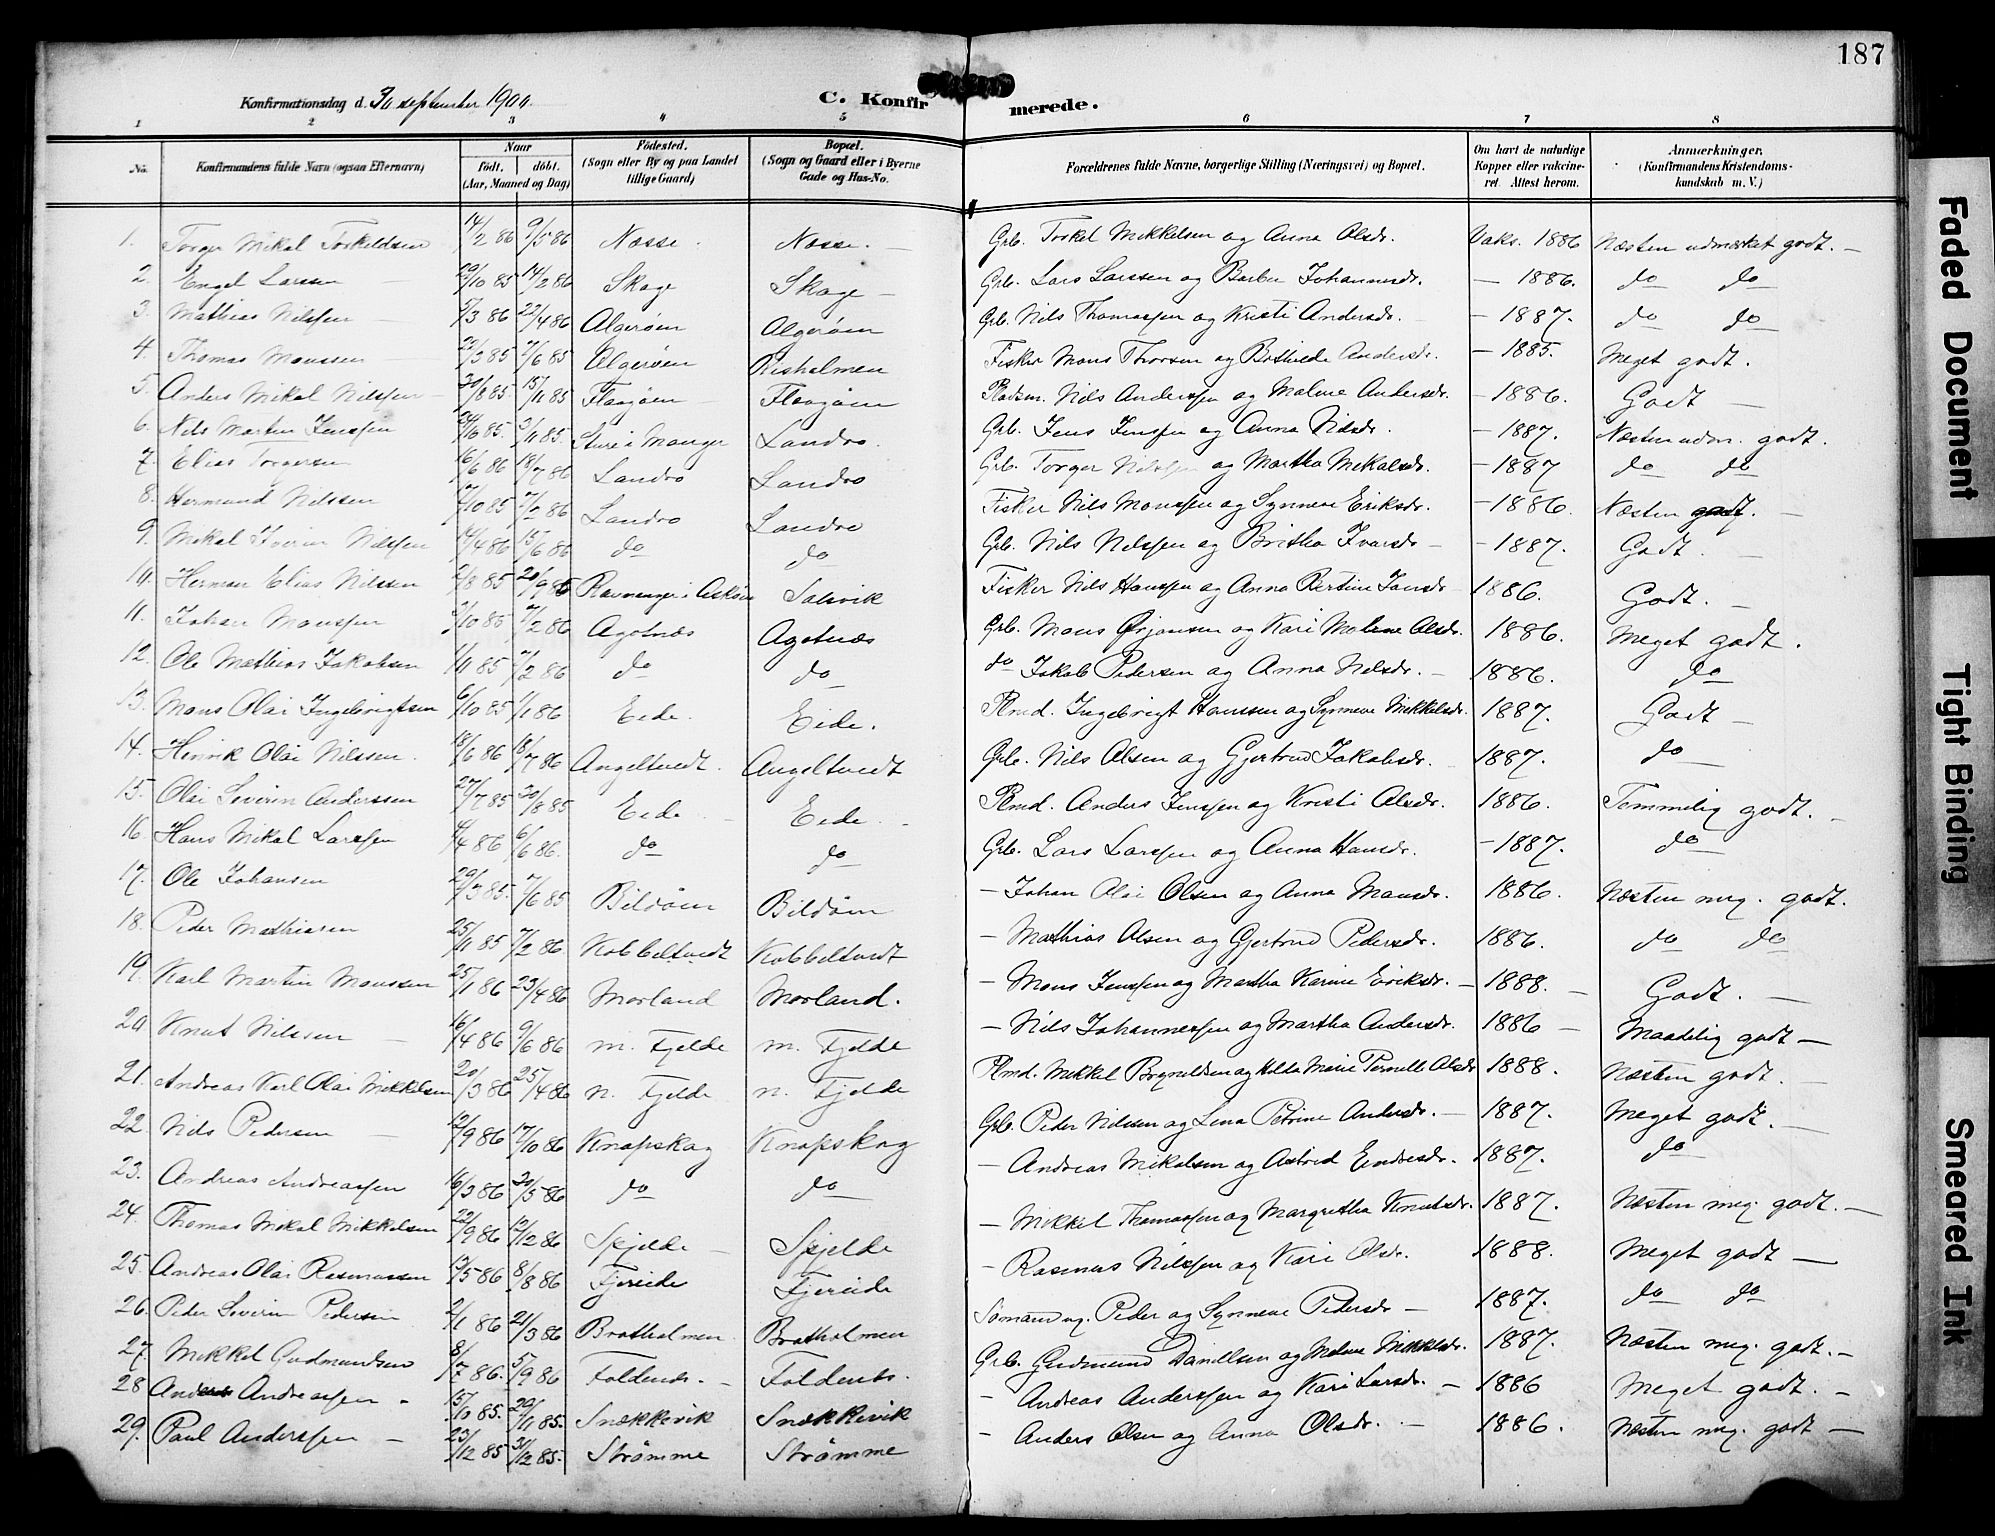 187
Konfirmationsdag d. 30 september 1900.
C. Konfirmerede.
1 2 3 4 5 6 7 8
No. Konfirmandens fulde Navn (ogsaa Efternavn) Naar født. døbt. (Aar, Maaned og Dag) Fødested. (Sogn eller By og paa Landet tillige Gaard) Bopæl. (Sogn og Gaard eller i Byerne Gade og Hus-No. Forældrenes fulde Navne, borgerlige Stilling (Næringsvei) og Bopæl. Om havt de naturlige Kopper eller vakcineret. Attest herom. Anmærkninger, (Konfirmandens Kristendomskundskab m. V.)
1. Torger Mikal Torkildsen 14/2 86 9/5 86 Næsse. Næsse. Grb. Torkel Mikkelsen og Anna Olsdr. Vaks. 1886 Næsten udmærket godt. —
2. Engel Larsen 29/10 85 14/2 86 Skage Skage — Grb. Lars Larssen og Barbu Johannesdr. — 1886. do do
3. Mathias Nilssen — 5/3 86 22/4 86 Algerøen Algerøen Grb. Nils Thomassen og Kristi Andersdr. — 1887. do do
4. Thomas Monssen — 7/6 85 Algerøen Risholmen Fisker Mons Thorsen og Andersdr. — 1885. Meget godt.
5. Anders Mikal Nilssen 15/11 85 Flagøen Flagøen Nils Anderssen og Malene Andersdr. — 1886. Godt —
6. Nils Martin Jenssen 3/11 85. Sture i Manger Landro. Grb. Jens Jenssen og Anna Nilsdr. — 1887. Næsten udm. godt.
7. Elias Torgersen 16/6 86 18/7 86 Landro Landro Grb. Torger Nilssen og Martha Mikalsdr. — 1887 do do
8. Hermund Nilssen 7/10 85 7/2 86 Landro Landro Fisker Nils Monssen og Synneve Eriksdr. — 1886. Næsten godt. —
9. Mikal Iverin Nilssen 14/4 86 15/6 86 do do Grb. Nils Nilssen og Britha Ivarsdr — — 1887. Godt. —
10. Herman Elias Nilssen 2/8 85 20/9 85 Ravnanger i Askøen Solsvik Fisker Nils Hanssen og Anna Bertine Jansdr 1886. Godt. —
11. Johan Monssen 3/10 85 7/2 86 Agotnæs Agotnæs Grb. Mons Ørjansen og Kari Malene Olsdr. 1886. Meget godt.
12. Ole Mathias Jakobsen 1/11 85 7/2 86 do do do Jakob Pedersen og Anna Nilsdr. — 1886. do
13. Mons Olai Ingebrigtsen 6/10 85 1/1 86 Eide. Eide. Plmd. Ingebrigt Hanssen og Synneve Mikkelsdr. 1887. Godt —
14. Henrik Olai Nilssen. 18/6 86 18/7 86 Angeltvedt. Angeltvedt Grb. Nils Olsen og Gjertrud Jakobsdr. 1887. do
15. Olai Severin Anderssen 27/7 85 30/8 85 Eide Eide. Plmd. Anders Jenssen og Kristi Olsdr. 1886. Temmelig godt. —
16. Hans Mikal Larssen 4/4 86 6/6 86. do do Grb. Lars Larssen og Anna Hansdr. — 1887. do
17. Ole Johansen 29/3 85. 7/6 85 Bildøen Bildøen — Johan Olai Olsen og Anna Monsdr. 1886. Næsten meg. godt.
18. Peder Mathiasen 25/11 85 7/2 86 Kobbeltvedt Kobbeltvedt — Mathias Olsen og Gjertrud Pedersdr. 1886. do do
19. Karl Martin Monssen 25/1 86 23/4 86 Morland Morland. — Mons Jenssen og Martha Karine Eriksdr. — 1888. — Godt. —
20. Knut Nilssen — 16/4 86 9/6 86 m. Fjelde m. Fjelde — Nils Johannessen og Martha Andersdr. 1886 — Maadelig godt —
21. Andreas Karl Olai Mikkelsen 20/3 86 25/4 86 n. Fjelde n. Fjelde Plmd. Mikkel Brynildsen og Hilda Marie Pernille Olsdr 1888. Næsten godt. —
22. Nils Pedersen — 12/9 86 17/10 86 Knapskog Knapskog Grb. Peder Nilssen og Lena Petrine Andersdr. — 1887. Meget godt. —
23. Andreas Andreassen 16/3 86 30/5 86 do do — Andreas Mikalsen og Astrid Endresdr. 1887. do
24. Thomas Mikal Mikkelsen 22/9 86 12/12 86 Spjelde — Spjelde — Mikkel Thomassen og Margretha Knutsdr. 1887. Næsten meg. godt. —
25. Andreas Olai Rasmussen 13/5 86 8/8 86 Fjereide Fjereide — Rasmus Nilssen og Kari Olsdr. 1888. Meget godt —
26. Peder Severin Pedersen 2/1 86 21/3 86 Bratholmen. Bratholmen Sømand ug. Peder og Synneve Pedersdr — 1887. do do
27. Mikkel Gudmundsen 8/7 86. 5/9 86 Foldenæs. — Foldenæs. Grb. Gudmund Daniellsen og Malene Mikkelsdr. 1887. Næsten meg. godt. —
28 Anders Andreassen — 15/10 85. 29/11 85. Snækkevik Snækkevik — Andreas Anderssen og Kari Larsdr. — 1886 Meget godt. —
29. Paul Anderssen — 23/12 85 31/12 85. Strømme Strømme — Anders Olsen og Anna Olsdr. — 1886. Næsten meg. godt —
Faded Document
Tight Binding
Smeared Ink